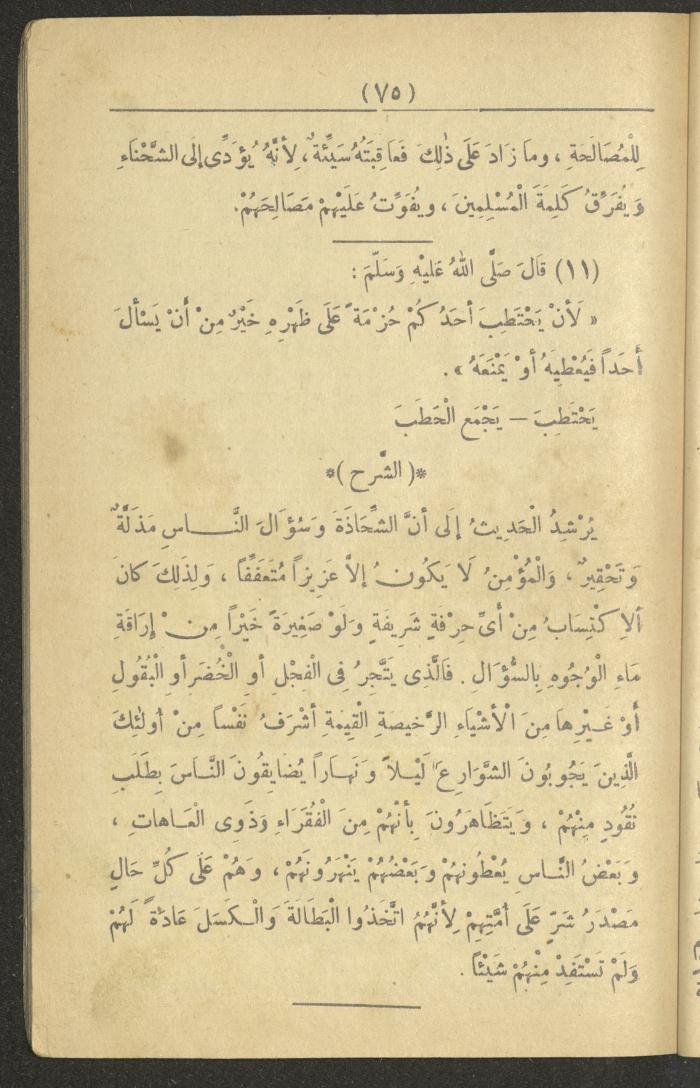 (٧٥)
لِلْمُصَالَحَةِ ، وما زَادَ عَلَى ذٰلِكَ فَعَاقِبَتُهُ سَيِّئَةٌ ، لِأَنَّهُ يُؤَدِّى إلَى الشَّحْنَاءِ
وَيُفَرِّقُ كَلِمَةَ الْمُسْلِمِينَ ، ويُفَوِّتُ عَلَيْهِمْ مَصَالِحَهُمْ.
(١١) قَالَ صَلَّى اللهُ عَلَيْهِ وَسَلَّمَ :
« لَأَنْ يَحْتَطِبَ أَحَدُكُمْ حُزْمَةً عَلَى ظَهْرِهِ خَيْرٌ مِنْ أَنْ يَسْأَلَ
أَحَداً فَيُعْطِيَهُ أَوْ يَمْنَعَهُ » .
يَحْتَطِبَ — يَجْمَع الْحَطَبَ
*( الشَّرح )*
يُرْشِدُ الْحَدِيثُ إلَى أنَّ الشِّحَاذَةَ وَسُؤَالَ النَّاسِ مَذَلَّةٌ
وَتَحْقِيرٌ ، وَالْمُؤْمِنُ لَا يَكُونُ إلاَّ عَزِيزاً مُتَعَفِّفًا ، وَلِذَلِكَ كانَ
ألِاكْتِسَابُ مِنْ أَىِّ حِرْفَةٍ شَرِيفَةٍ وَلَوْ صَغِيرَةً خَيْراً مِنْ إرَاقَةِ
مَاءِ الْوُجُوهِ بِالسُّؤَال . فَالَّذِى يَتَّجِرُ فِى الْفِجْلِ أوِ الْخُضَرِ أوِ الْبُقُولِ
أَوْ غَيْرِهَا مِنَ الْأَشْيَاءِ الرَّخِيصَةِ الْقِيمَةِ أَشْرَفُ نَفْساً مِنْ أُولَئِكَ
الَّذِينَ يَجُوبُونَ الشَّوَارِعَ لَيْلاً وَنَهَاراً يُضَايِقُونَ النَّاسَ بِطَلَبِ
نُقُودٍ مِنْهُمْ ، وَيَتَظَاهَرُونَ بِأَنَّهُمْ مِنَ الْفُقَرَاءِ وَذَوِى الْعَاهَاتِ ،
وَبَعْضُ النَّاسِ يُعْطُونَهُمْ وَبَعْضُهُمْ يَنْهَرُونَهُمْ ، وَهُمْ عَلَى كُلِّ حَالٍ
مَصْدَرُ شَرٍّ عَلَى أُمَّتِهِمْ لِأَنَّهُمُ اتَّخَذُوا الْبَطَالَةَ وَالْكَسَلَ عَادَةً لَهُمْ
وَلَمْ تَسْتَفِدْ مِنْهُمْ شَيْئًا .